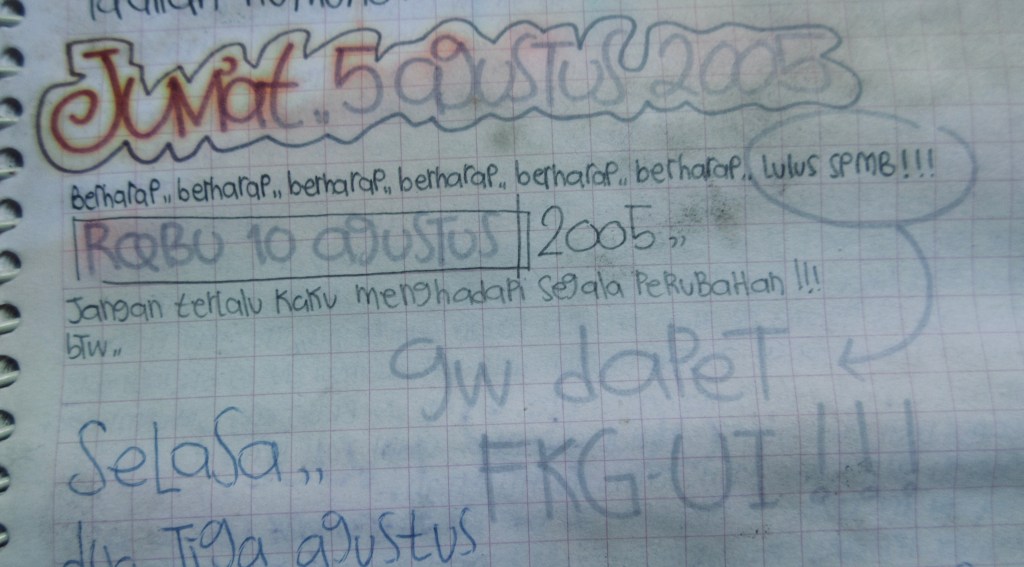 Jumat,, 5 agustus 2005
Berharap,, berharap,, berharap,, berharap,, berharap,, berharap,, Lulus SPMB!!!
RaBU 10 agustus 2005,,
Jangan terlalu kaku menghadapi segala PeRUBaHan !!!
btw,,
gw daPeT
FKG-UI!!!
SeLaSa,,
Tiga agustus